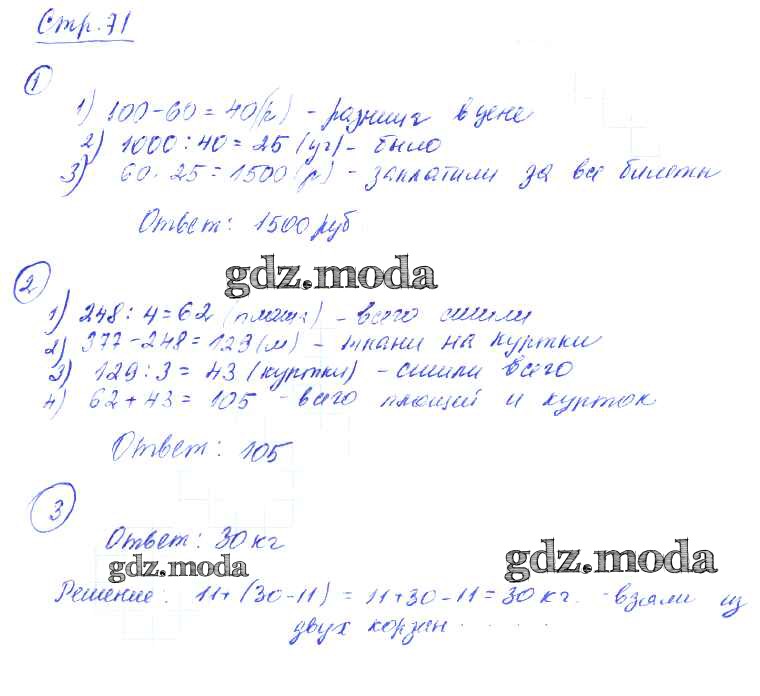 Стр. 71
1
1) 100-60=40(р) - разница в цене
2) 1000:40=25 (уч) - было
3) 60·25=1500(р) - заплатили за все билеты
Ответ: 1500 руб
gdz.moda
2
1) 248:4=62 (плаща) - всего сшили
2) 377-248=129(м) - ткани на куртки
3) 129:3=43 (куртки) - сшили всего
4) 62+43=105 - всего плащей и курток
Ответ: 105
3
Ответ: 30 кг
gdz.moda
gdz.moda
Решение: 11+(30-11)=11+30-11=30 кг. - взяли из
двух корзин